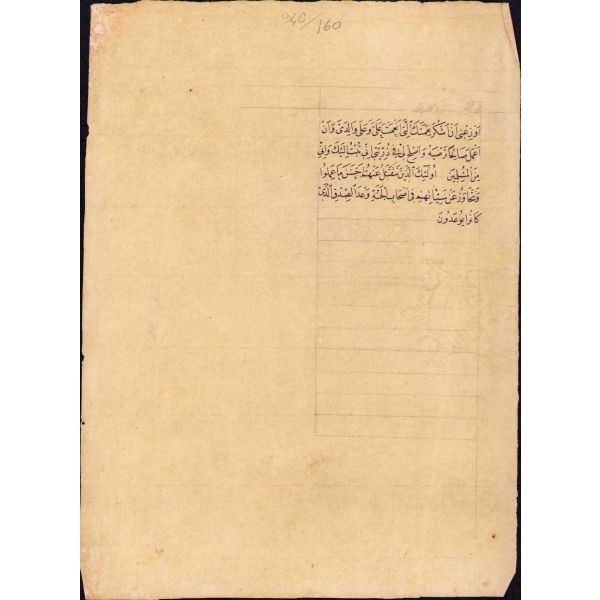 940/160
اَوْزِعْنِى اَنْ اَشْكُرَ نِعْمَتَكَ الَّتِى اَنْعَمْتَ عَلَىَّ وَعَلٰى وَالِدَىَّ وَاَنْ
اَعْمَلَ صَالِحًا تَرْضٰيهُ وَاَصْلِحْ لِى فِى ذُرِّيَّتِى اِنِّى تُبْتُ اِلَيْكَ وَاِنِّى
مِنَ الْمُسْلِمِينَ اُولٰئِكَ الَّذِينَ نَتَقَبَّلُ عَنْهُمْ اَحْسَنَ مَا عَمِلُوا
وَنَتَجَاوَزُ عَنْ سَيِّئَاتِهِمْ فِى اَصْحَابِ الْجَنَّةِ وَعْدَ الصِّدْقِ الَّذِى
كَانُوا يُوعَدُونَ